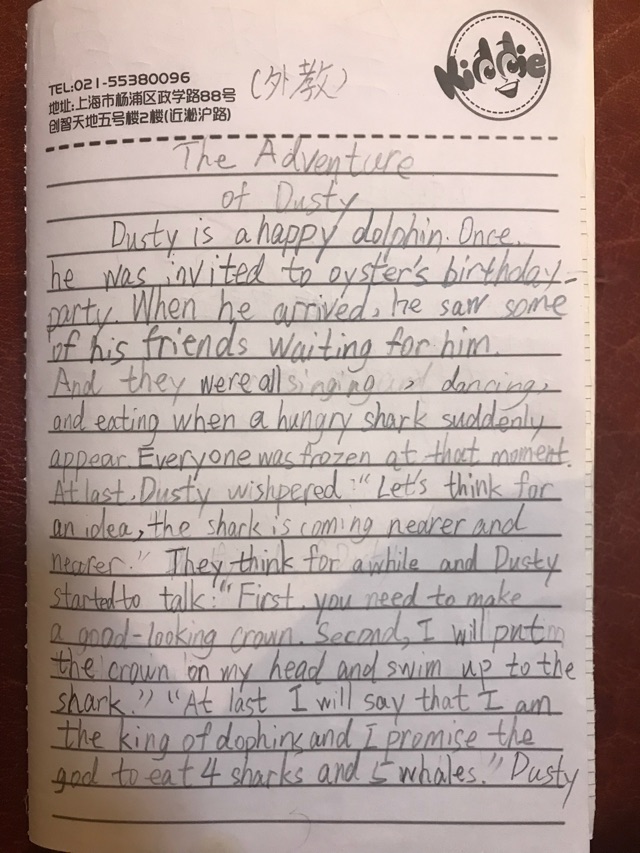 Kiddie
TEL:021-55380096
(外教)
地址:上海市杨浦区政学路88号
创智天地五号楼2楼(近淞沪路)
The Adventure
of Dusty
Dusty is a happy dolphin. Once,
he was invited to oyster's birthday-
party. When he arrived, he saw some
of his friends waiting for him.
And they were all singing, dancing,
and eating when a hungry shark suddenly
appear. Everyone was frozen at that moment.
At last, Dusty wishpered:"Let's think for
an idea, the shark is coming nearer and
nearer." They think for a while and Dusty
started to talk:"First, you need to make
a good-looking crown. Second, I will put
the crown on my head and swim up to the
shark.") "At last I will say that I am
the king of dophins and I promise the
god to eat 4 sharks and 5 whales." Dusty